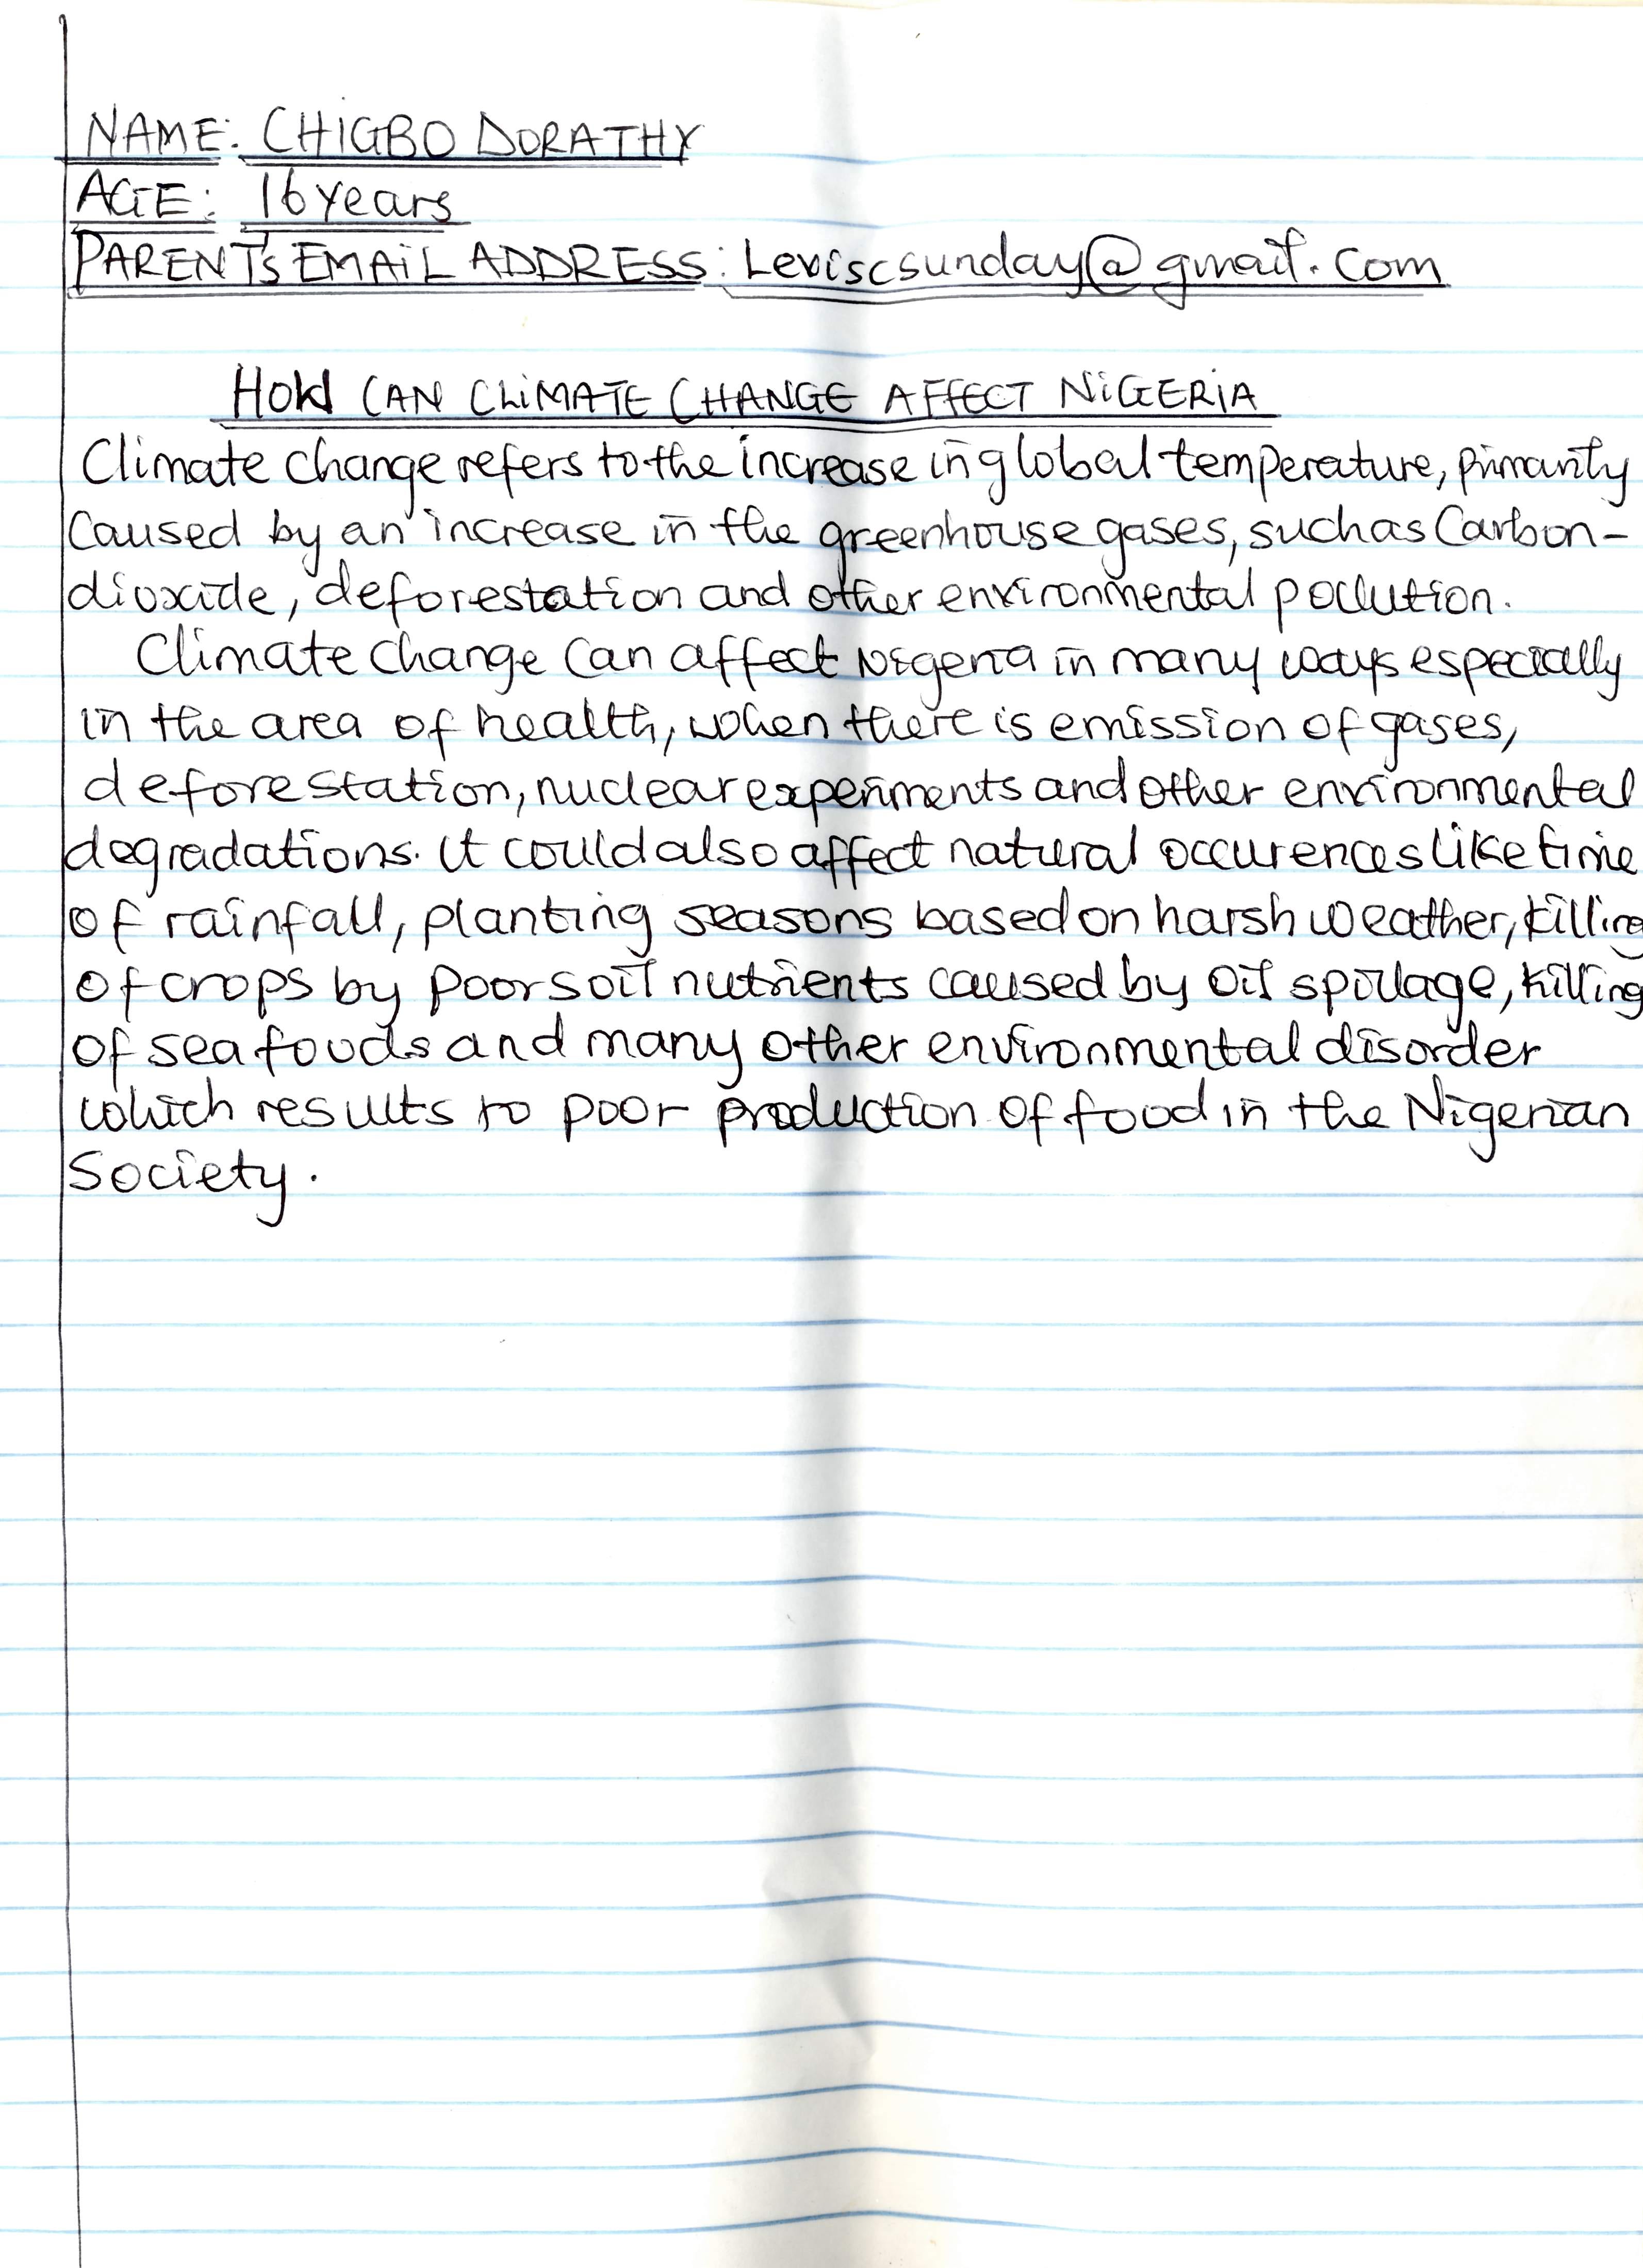 NAME: CHIGBO DORATHY
AGE: 16 years
PARENT'S EMAIL ADDRESS: Leviscsunday@gmail.com
HOW CAN CLIMATE CHANGE AFFECT NIGERIA
Climate change refers to the increase in global temperature, primarily
caused by an increase in the greenhouse gases, such as Carbon-
dioxide, deforestation and other environmental pollution.
Climate change can affect Nigeria in many ways especially
in the area of health, when there is emission of gases,
deforestation, nuclear experiments and other environmental
degradations. It could also affect natural occurences like time
of rainfall, planting seasons based on harsh weather, killing
of crops by poor soil nutrients caused by oil spillage, killing
of sea foods and many other environmental disorder
which results to poor production of food in the Nigerian
Society.